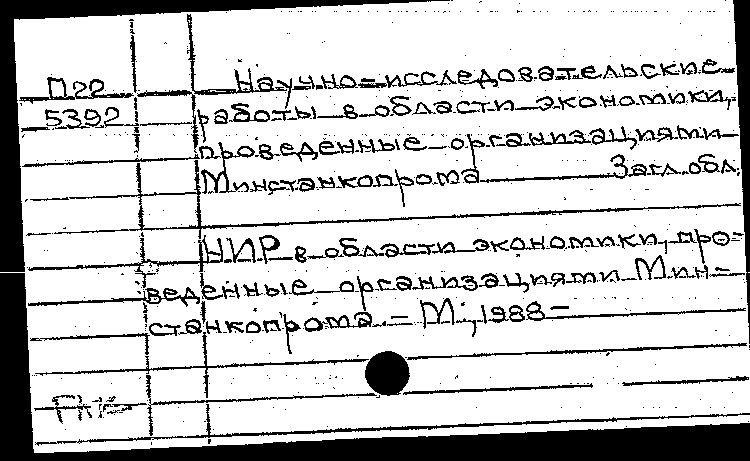 П22
5392
Научно-исследовательские
работы в области экономики,
проведенные организациями
Минстанкопрома Загл. обл.
НИР в области экономики, про-
веденные организациями Мин-
станкопрома. – М., 1988 –